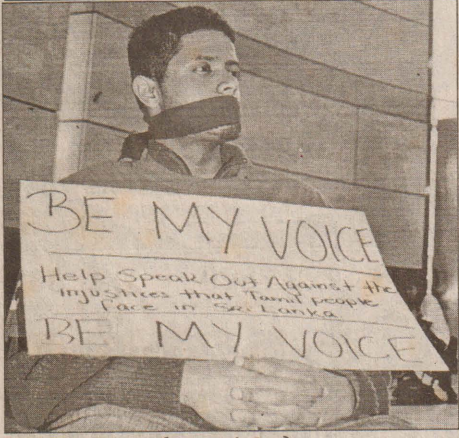 BE MY VOICE
Help Speak Out Against the
injustices that Tamil people
face in Sri Lanka
BE MY VOICE